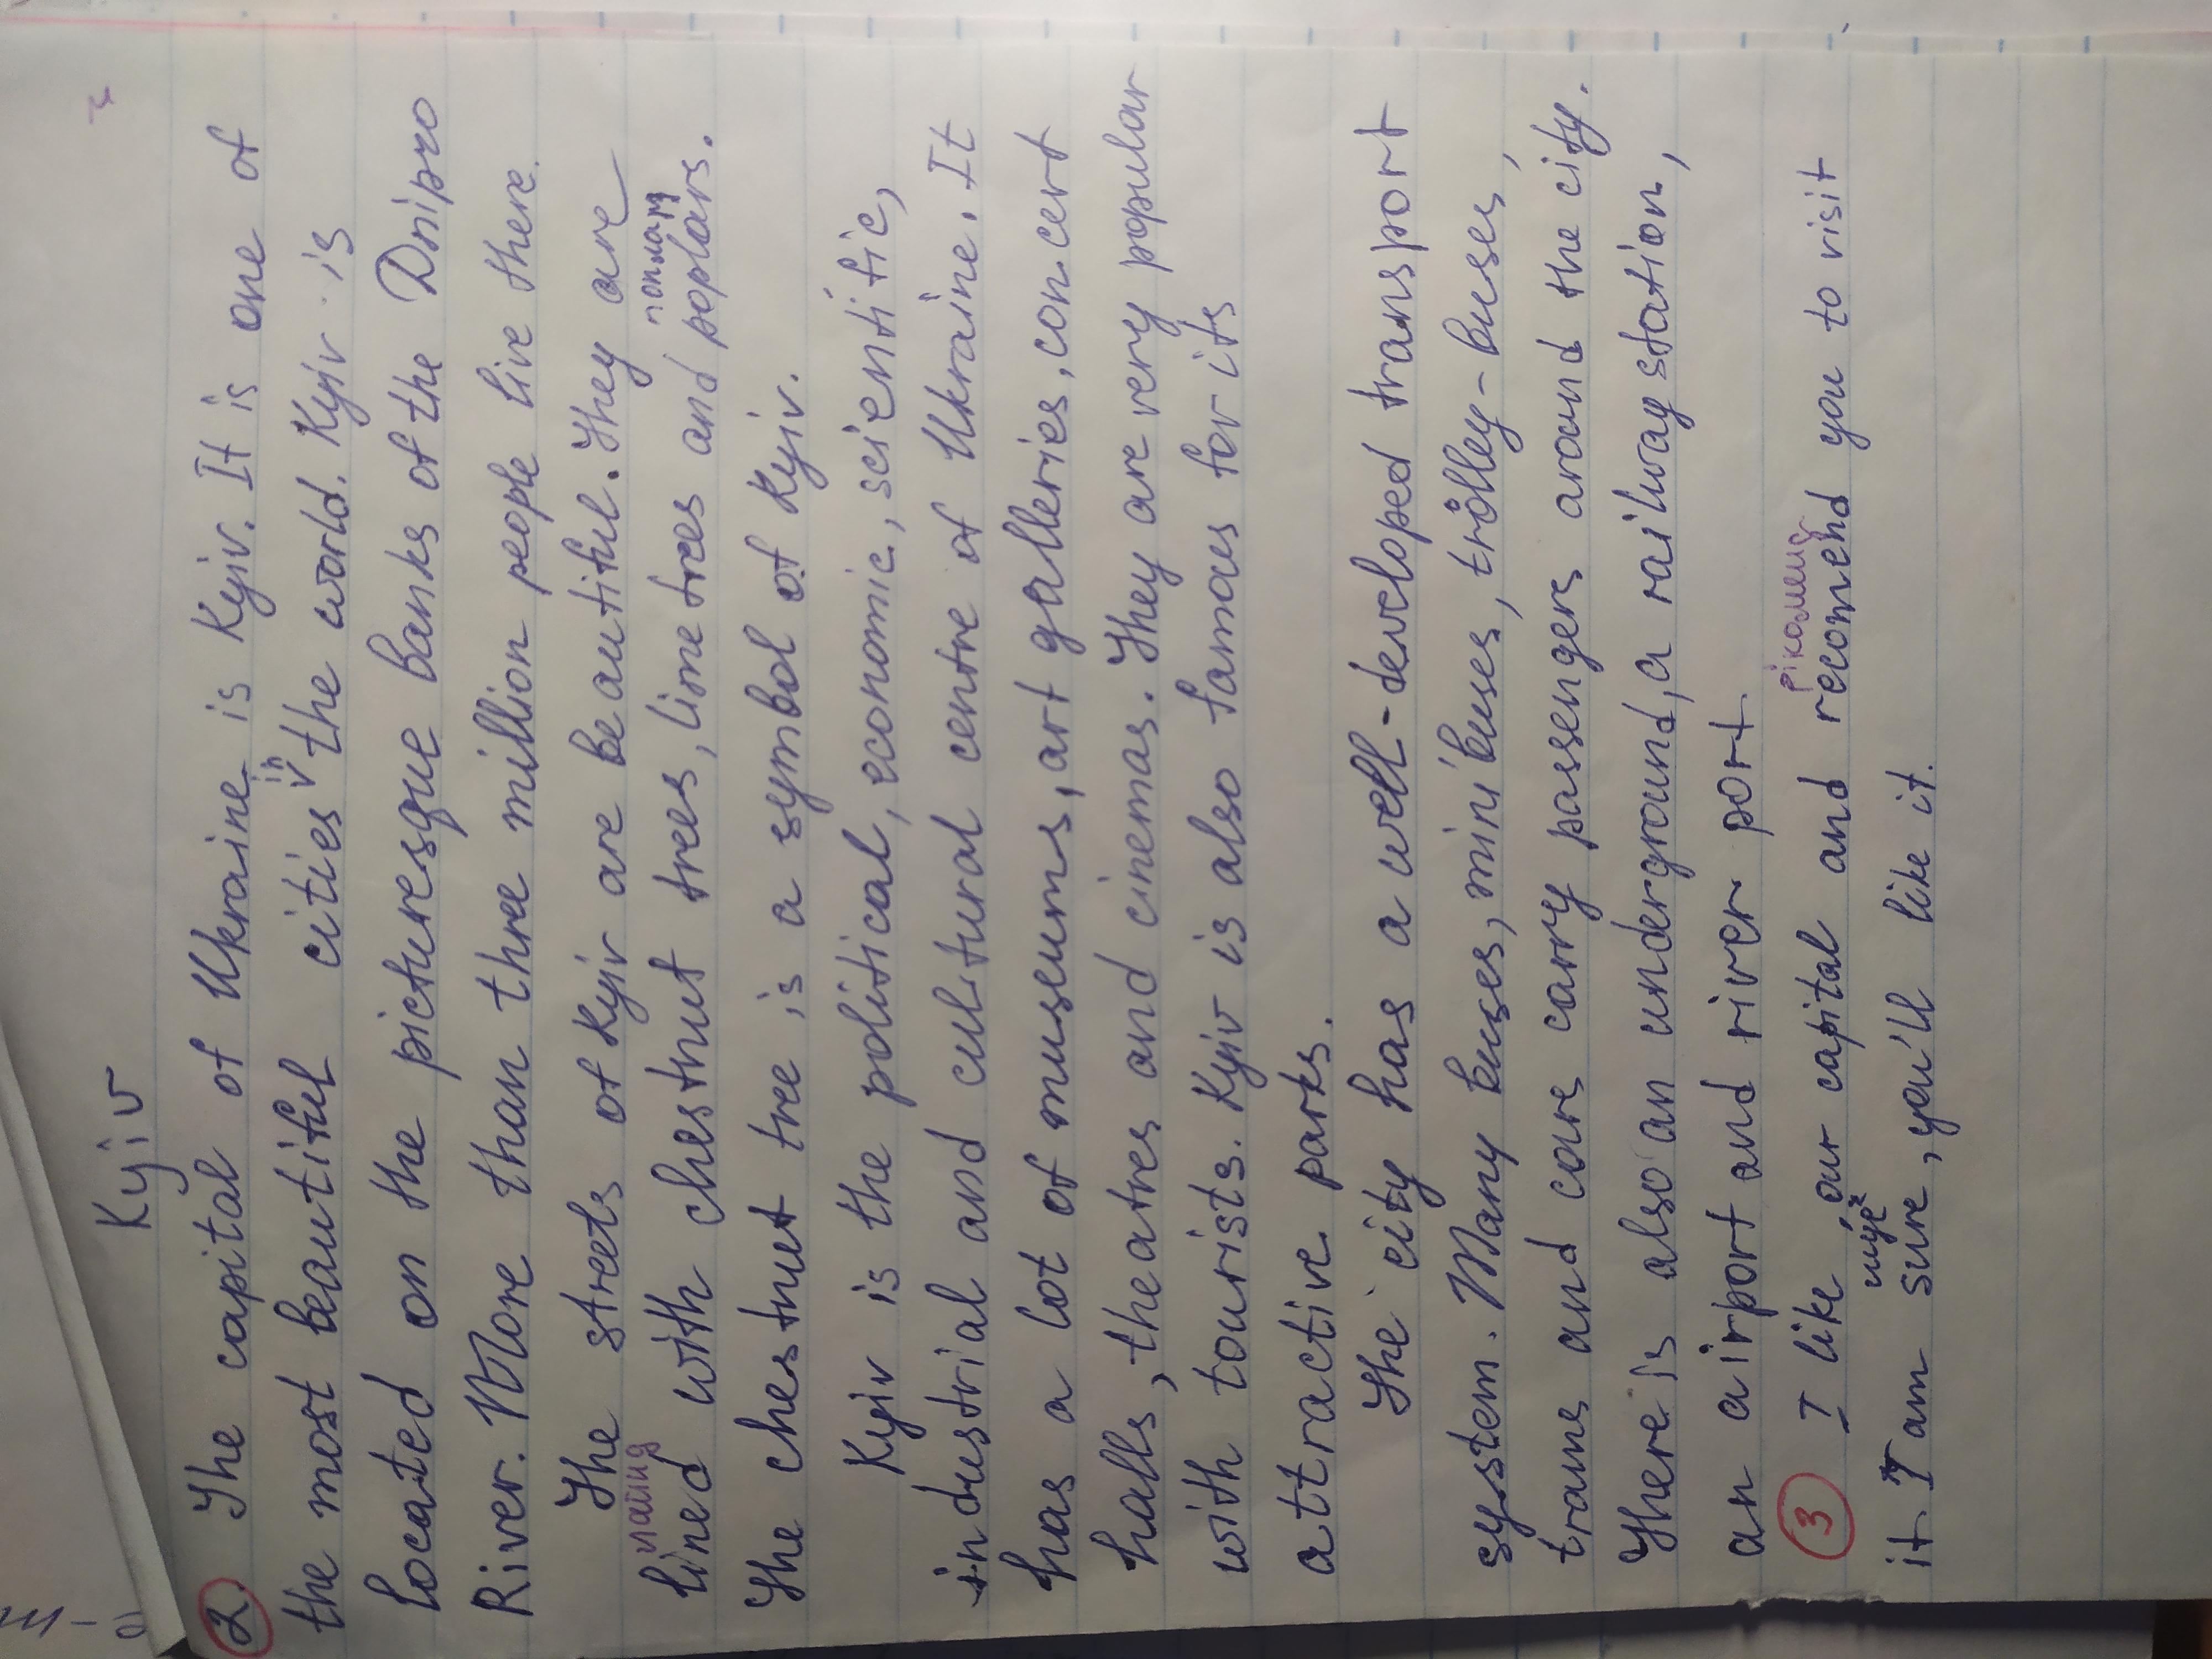 Kyiv
2. The capital of Ukraine is Kyiv. It is one of
the most beautiful cities in the world. Kyiv is
located on the picturesque banks of the Dnipro
River. More than three million people live there.
The streets of Kyiv are beautiful. They are
тополям
lined with chestnut trees, lime trees and poplars.
The chestnut tree is a symbol of Kyiv.
Kyiv is the political, economic, scientific,
industrial and cultural centre of Ukraine. It
has a lot of museums, art galleries, concert
halls, theatres and cinemas. They are very popular
with tourists. Kyiv is also famous for its
attractive parks.
The city has a well-developed transport
system. Many buses, minibuses, trolley-buses,
trams and cars carry passengers around the city.
There is also an underground, a railway station,
an airport and river port.
рікоменд
3 I like our capital and recomend you to visit
шуе
it. I am sure, you'll like it.